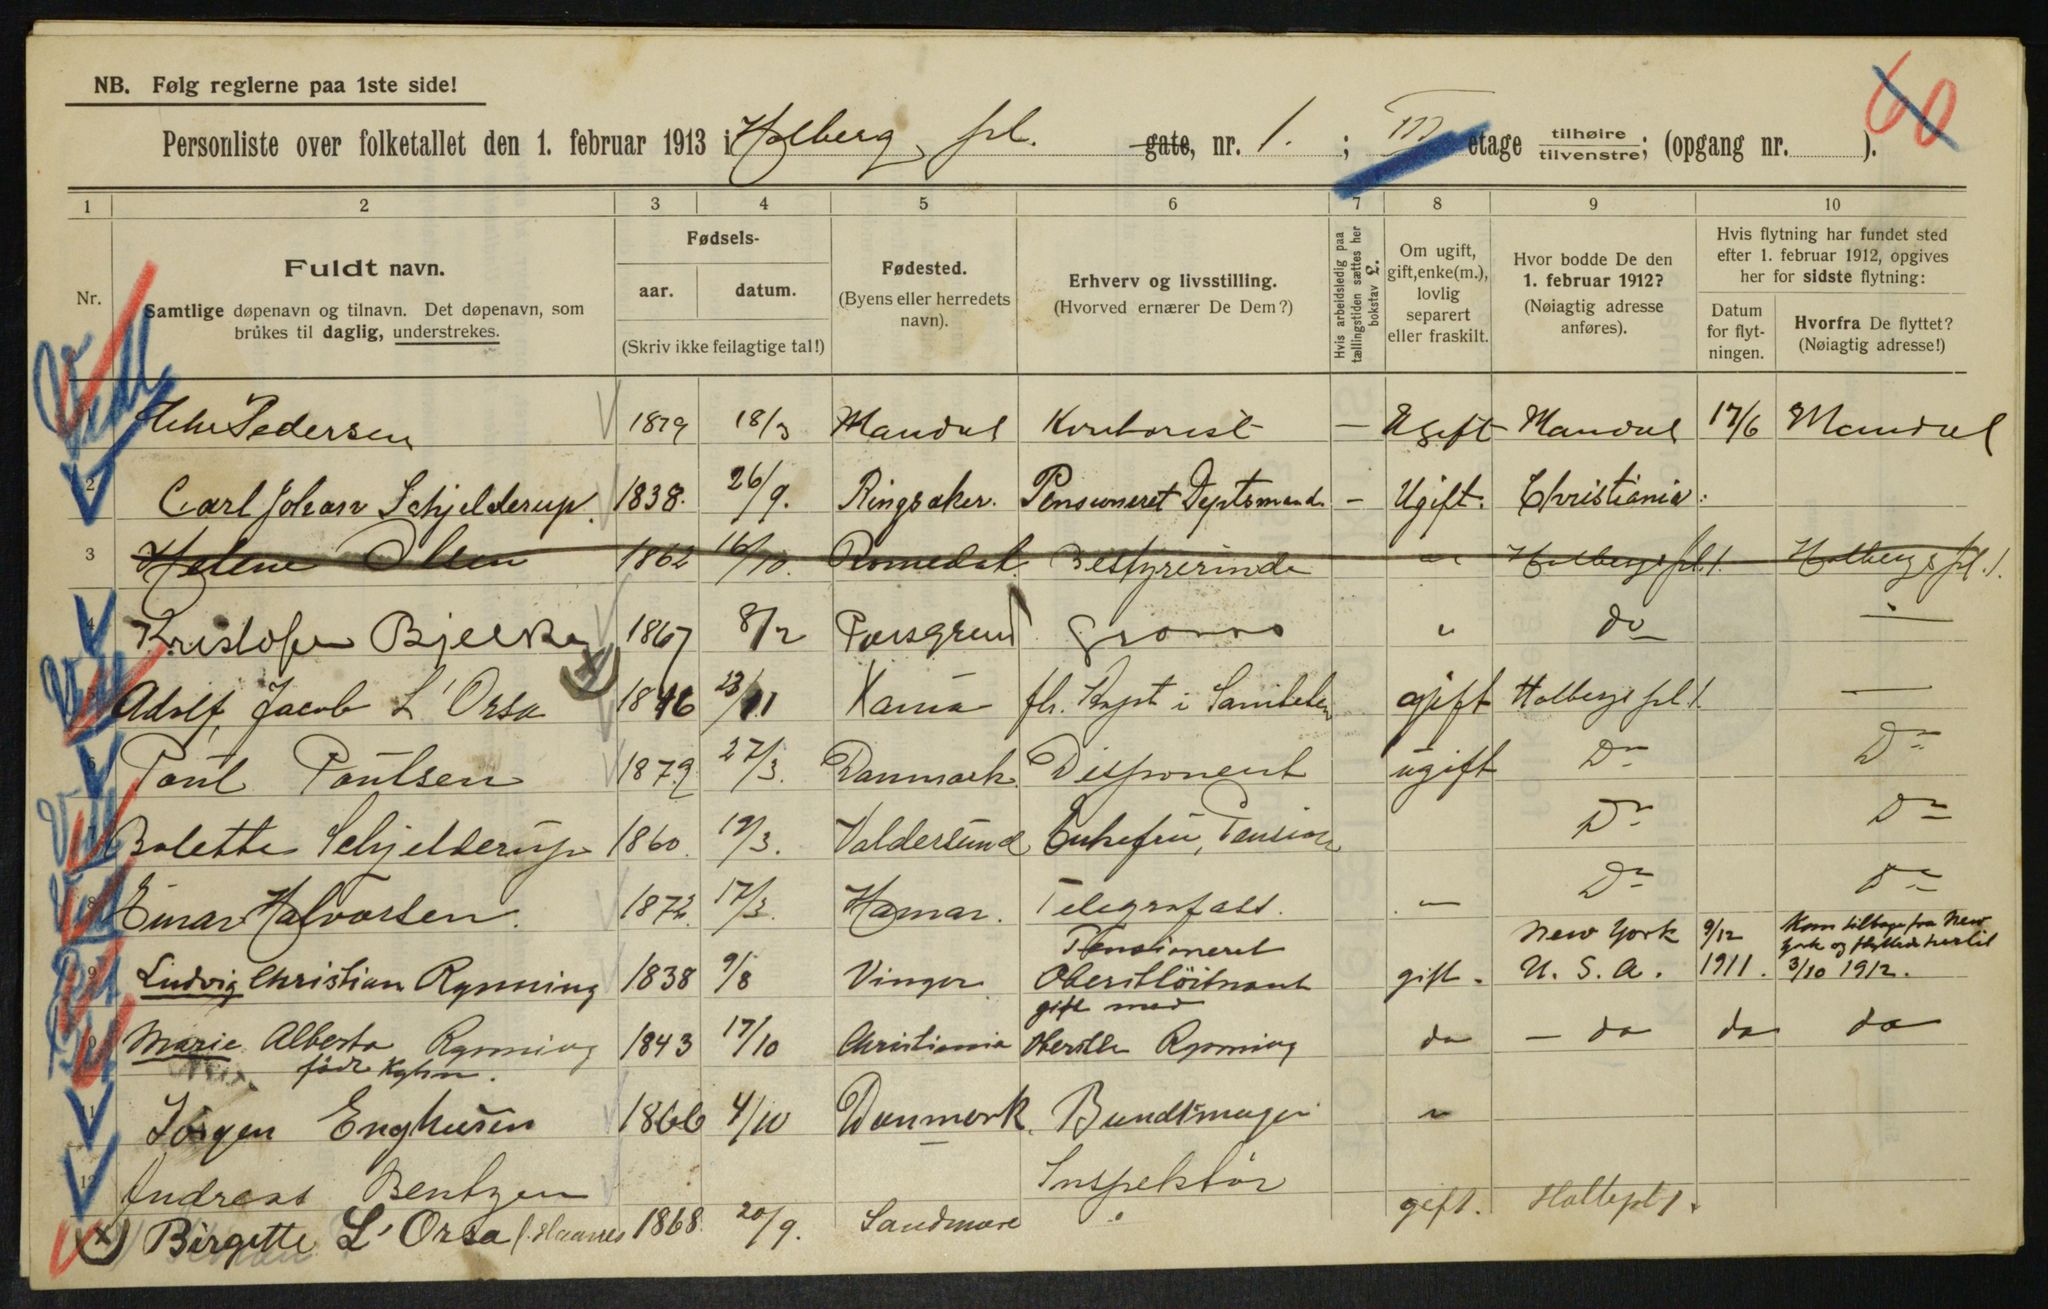 60
NB. Følg reglerne paa 1ste side!
Personliste over folketallet den 1. februar 1913 i Holberg pl. gate, nr. 1. ; III etage tilhøire tilvenstre; (opgang nr. ).
1 2 3 4 5 6 7 8 9 10
Nr.
Fuldt navn.
Samtlige døpenavn og tilnavn. Det døpenavn, som
brukes til daglig, understrekes.
Fødsels-
aar. datum.
(Skriv ikke feilagtige tal!)
Fødested.
(Byens eller herredets
navn).
Erhverv og livsstilling.
(Hvorved ernærer De Dem?)
Hvis arbeidsledig paa
tællingstiden sættes her
bokstav L.
Om ugift,
gift, enke(m.),
lovlig
separert
eller fraskilt.
Hvor bodde De den
1. februar 1912?
(Nøiagtig adresse
anføres).
Hvis flytning har fundet sted
efter 1. februar 1912, opgives
her for sidste flytning:
Datum
for flyt-
ningen.
Hvorfra De flyttet?
(Nøiagtig adresse!)
1 Pedersen 1879 18/3 Mandal Kontorist — Ugift Mandal 17/6 Mandal
2 Carl Johan Schjelderup. 1838. 26/9. Ringsaker. Pensioneret Deptsmand. — Ugift. Christiania.
3 Helene Olsen 1862 16/10. Romedal. Bestyrerinde " Holbergs pl. 1. Holbergs pl. 1.
4 Kristofer Bjelke 1867 8/2 Porsgrund Grosss " do —
5 Adolf Jacob L'Orsa 1846 23/11 Xania fh. Kapt i gift Holbergs pl 1. —
6 Poul Poulsen 1879 27/3. Danmark. Disponent ugift Do Do
7 Bolette Schjelderup 1860. 19/3. Valdersund Enkefru, Pension Do Do
8 Einar Halvorsen. 1872 17/3. Hamar. Telegrafass. — Do Do
9 Ludvig Christian Rynning 1838 9/8 Vinger Pensioneret Oberstlöitnant gift. New York U. S. A. 9/12 1911. Kom tilbage fra New York og flyttede hertil 3/10 1912.
10 Marie Alberta Rynning 1843 17/10 Christiania gift med Oberstlt Rynning do — do do do
født
11 Jörgen Enghusen 1866 4/10 Danmark. Bundtmager "
12 Andreas Bentzen Inspektör
x) Birgette L'Orsa f. Hannes 1868 20/9. Söndmøre " gift. Holbpl 1.